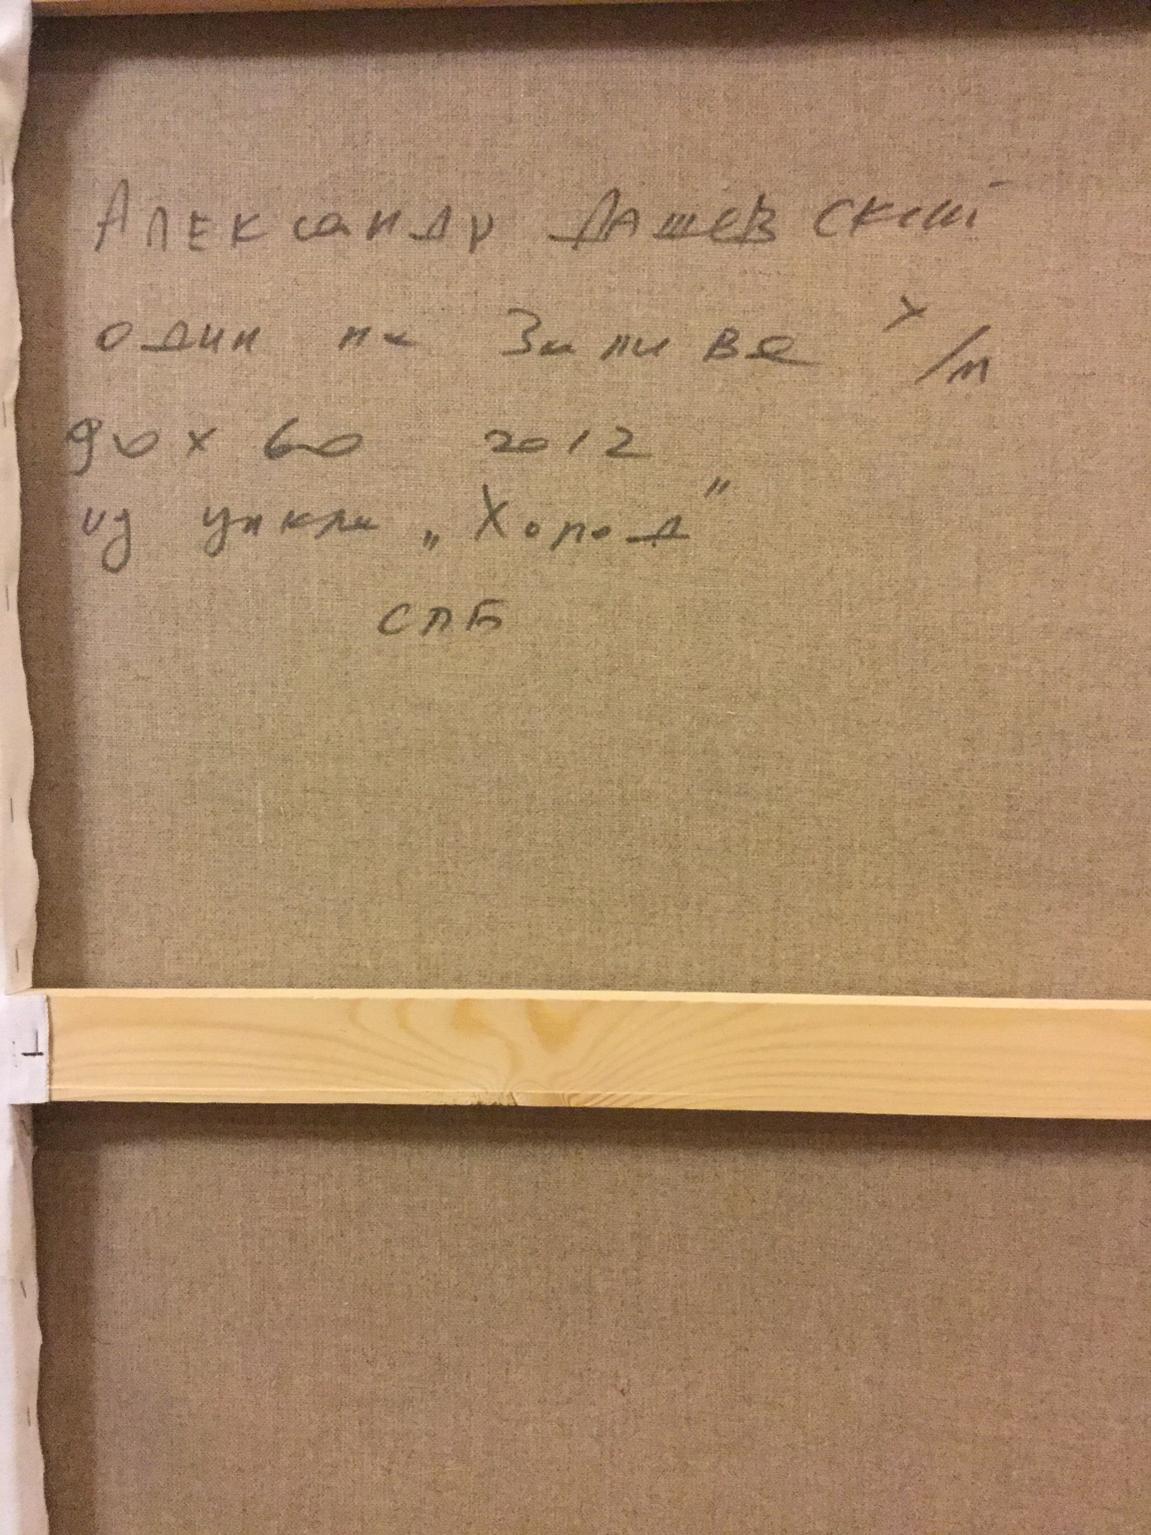 Александр Дашевский
один на Заливе х/м
90 х 60 2012
из цикла „Холод"
СПБ